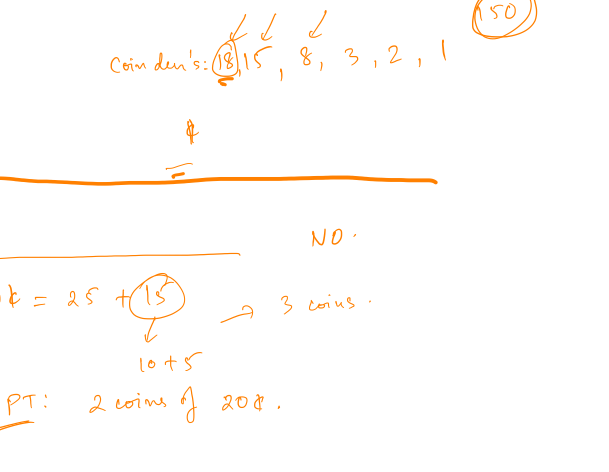 150
Coin den's: 18, 15, 8, 3, 2, 1
¢
NO.
¢ = 25 + 15 → 3 coins.
10+5
PT: 2 coins of 20¢.